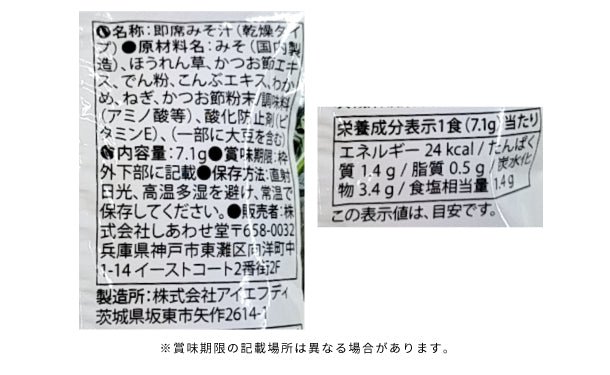 名称：即席みそ汁（乾燥タイ
プ）●原材料名：みそ（国内製
造）、ほうれん草、かつお節エキ
ス、でん粉、こんぶエキス、わか
め、ねぎ、かつお節粉末／調味料
（アミノ酸等）、酸化防止剤（ビ
タミンE）、（一部に大豆を含む）
●内容量：7.1g●賞味期限：枠
外下部に記載●保存方法：直射
日光、高温多湿を避け、常温で
保存してください。●販売者：株
式会社しあわせ堂〒658-0032
兵庫県神戸市東灘区向洋町中
1-14 イーストコート2番街2F
製造所：株式会社アイエフディ
茨城県坂東市矢作2614-1
栄養成分表示1食（7.1g）当たり
エネルギー 24 kcal / たんぱく
質 1.4g / 脂質 0.5g / 炭水化
物 3.4g / 食塩相当量 1.4g
この表示値は、目安です。
※賞味期限の記載場所は異なる場合があります。